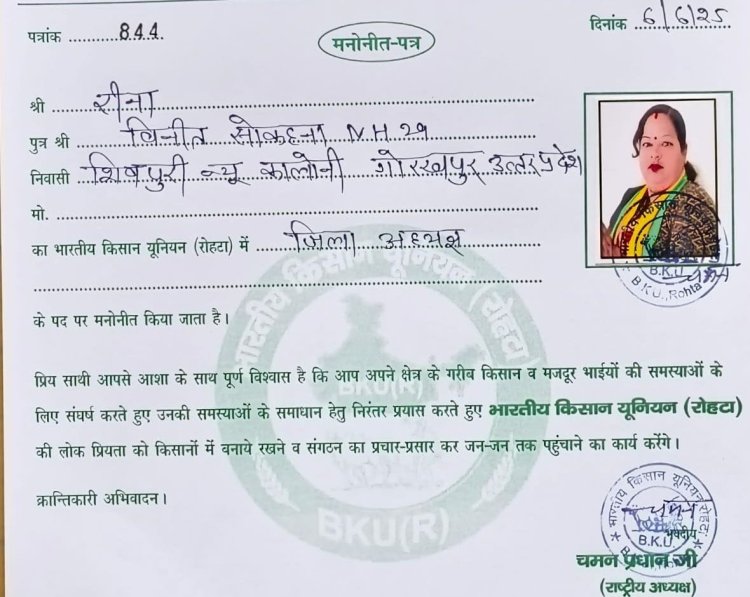 पत्रांक ..........844.
दिनांक 6/6/25
मनोनीत-पत्र
श्री रीना
पुत्र श्री विनीत M.H 29
निवासी शिवपुरी न्यू कालोनी गोरखपुर उत्तर प्रदेश
मो.
का भारतीय किसान यूनियन (रोहटा) में जिला अध्यक्ष
के पद पर मनोनीत किया जाता है।
प्रिय साथी आपसे आशा के साथ पूर्ण विश्वास है कि आप अपने क्षेत्र के गरीब किसान व मजदूर भाईयों की समस्याओं के
लिए संघर्ष करते हुए उनकी समस्याओं के समाधान हेतु निरंतर प्रयास करते हुए भारतीय किसान यूनियन (रोहटा)
की लोक प्रियता को किसानों में बनाये रखने व संगठन का प्रचार-प्रसार कर जन-जन तक पहुंचाने का कार्य करेंगे।
क्रान्तिकारी अभिवादन।
भवदीय
चमन प्रधान जी
(राष्ट्रीय अध्यक्ष)
भारतीय किसान यूनियन (रोहटा)
BKU(R)
BKU(R)
भारतीय किसान यूनियन
B.K.U
B.K.U., Rohta
भारतीय किसान यूनियन रोहटा
चमन
B.K.U